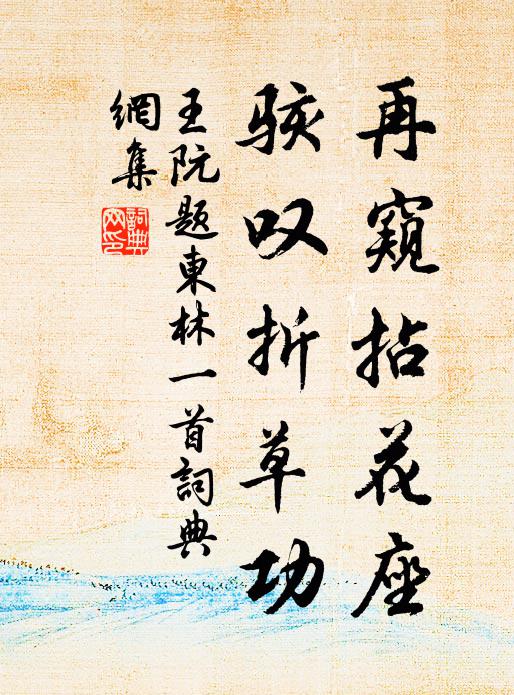 再窺拈花座
骇叹折草功
王阮题東林一首詞典
網集
詞典
网印